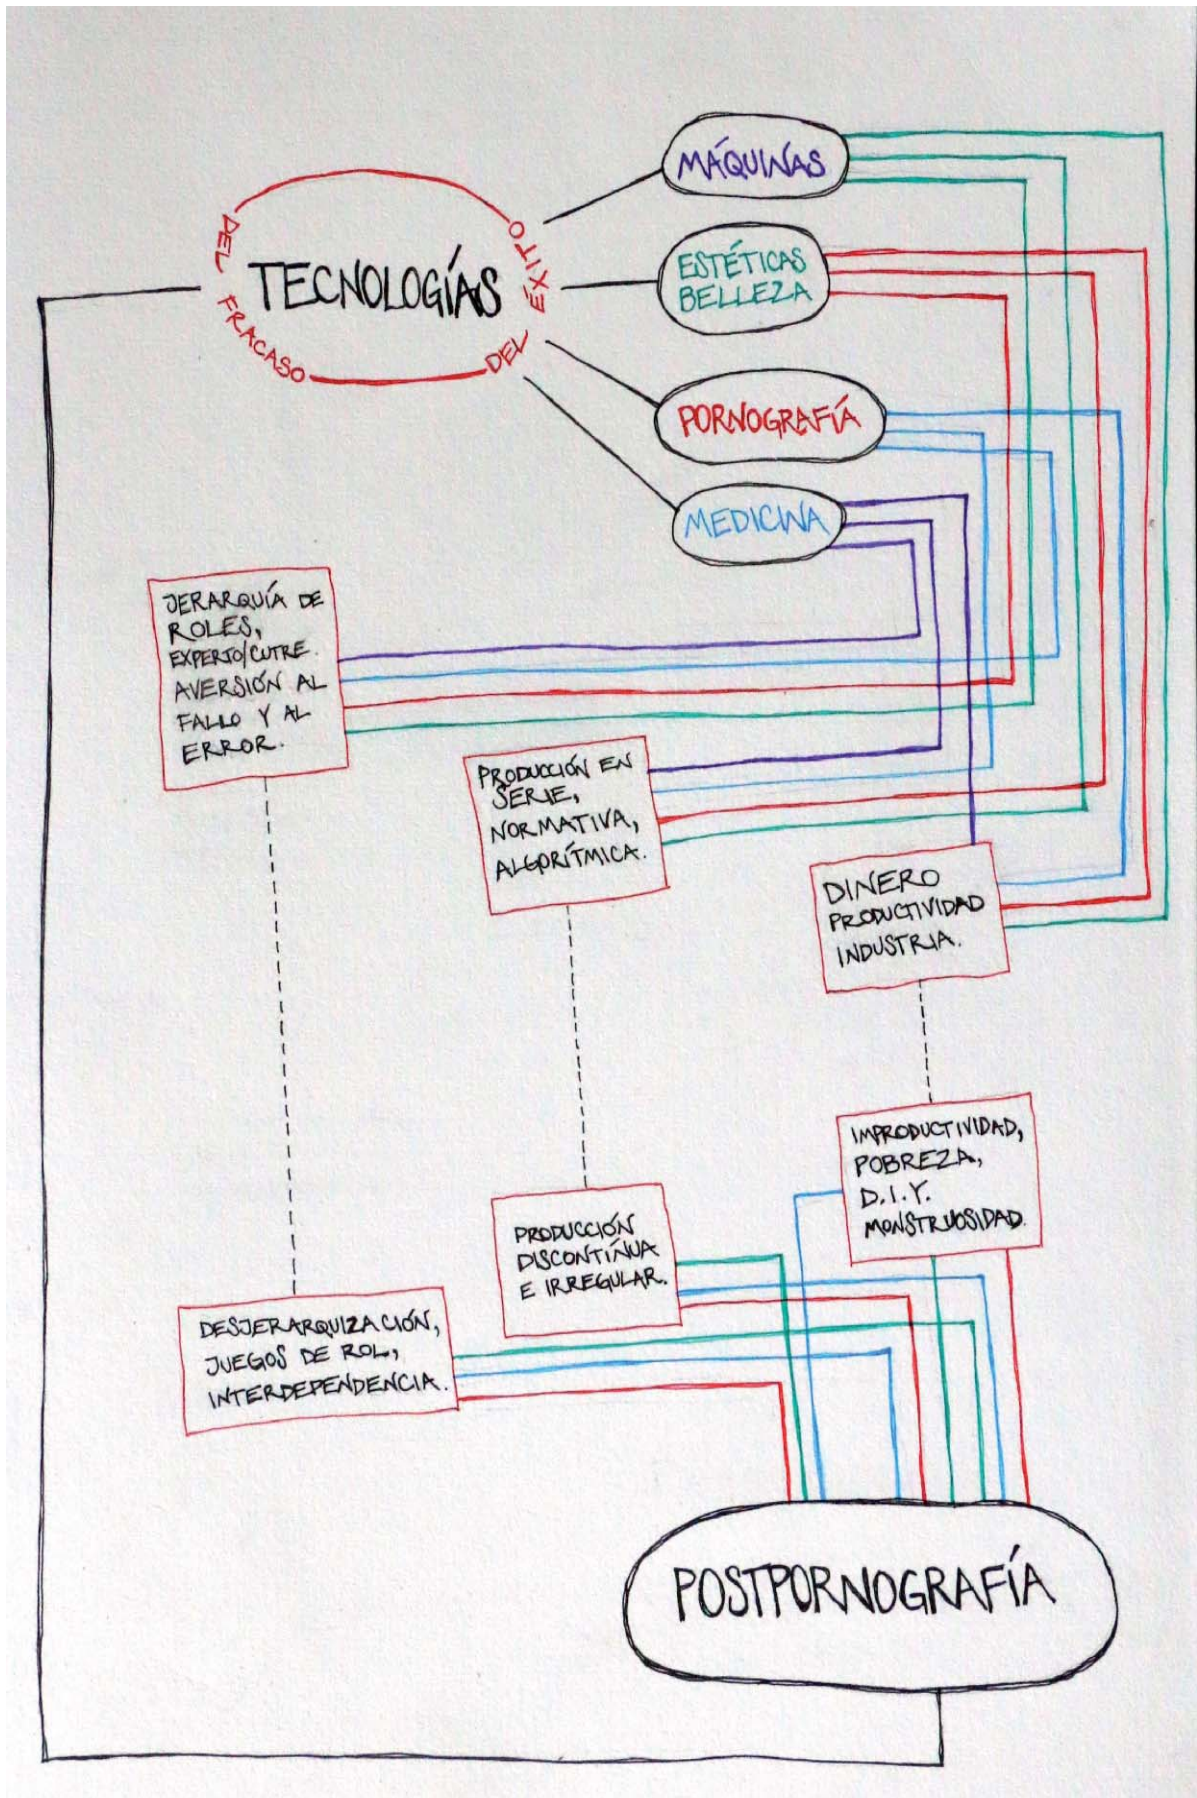 MÁQUINAS
DEL ÉXITO
TECNOLOGÍAS
DEL FRACASO
ESTÉTICAS
BELLEZA
PORNOGRAFÍA
MEDICINA
JERARQUÍA DE
ROLES,
EXPERTO/CUTRE.
AVERSIÓN AL
FALLO Y AL
ERROR.
PRODUCCIÓN EN
SERIE,
NORMATIVA,
ALGORÍTMICA.
DINERO
PRODUCTIVIDAD
INDUSTRIA.
IMPRODUCTIVIDAD,
POBREZA,
D.I.Y.
MONSTRUOSIDAD.
PRODUCCIÓN
DISCONTÍNUA
E IRREGULAR.
DESJERARQUIZACIÓN,
JUEGOS DE ROL,
INTERDEPENDENCIA.
POSTPORNOGRAFÍA